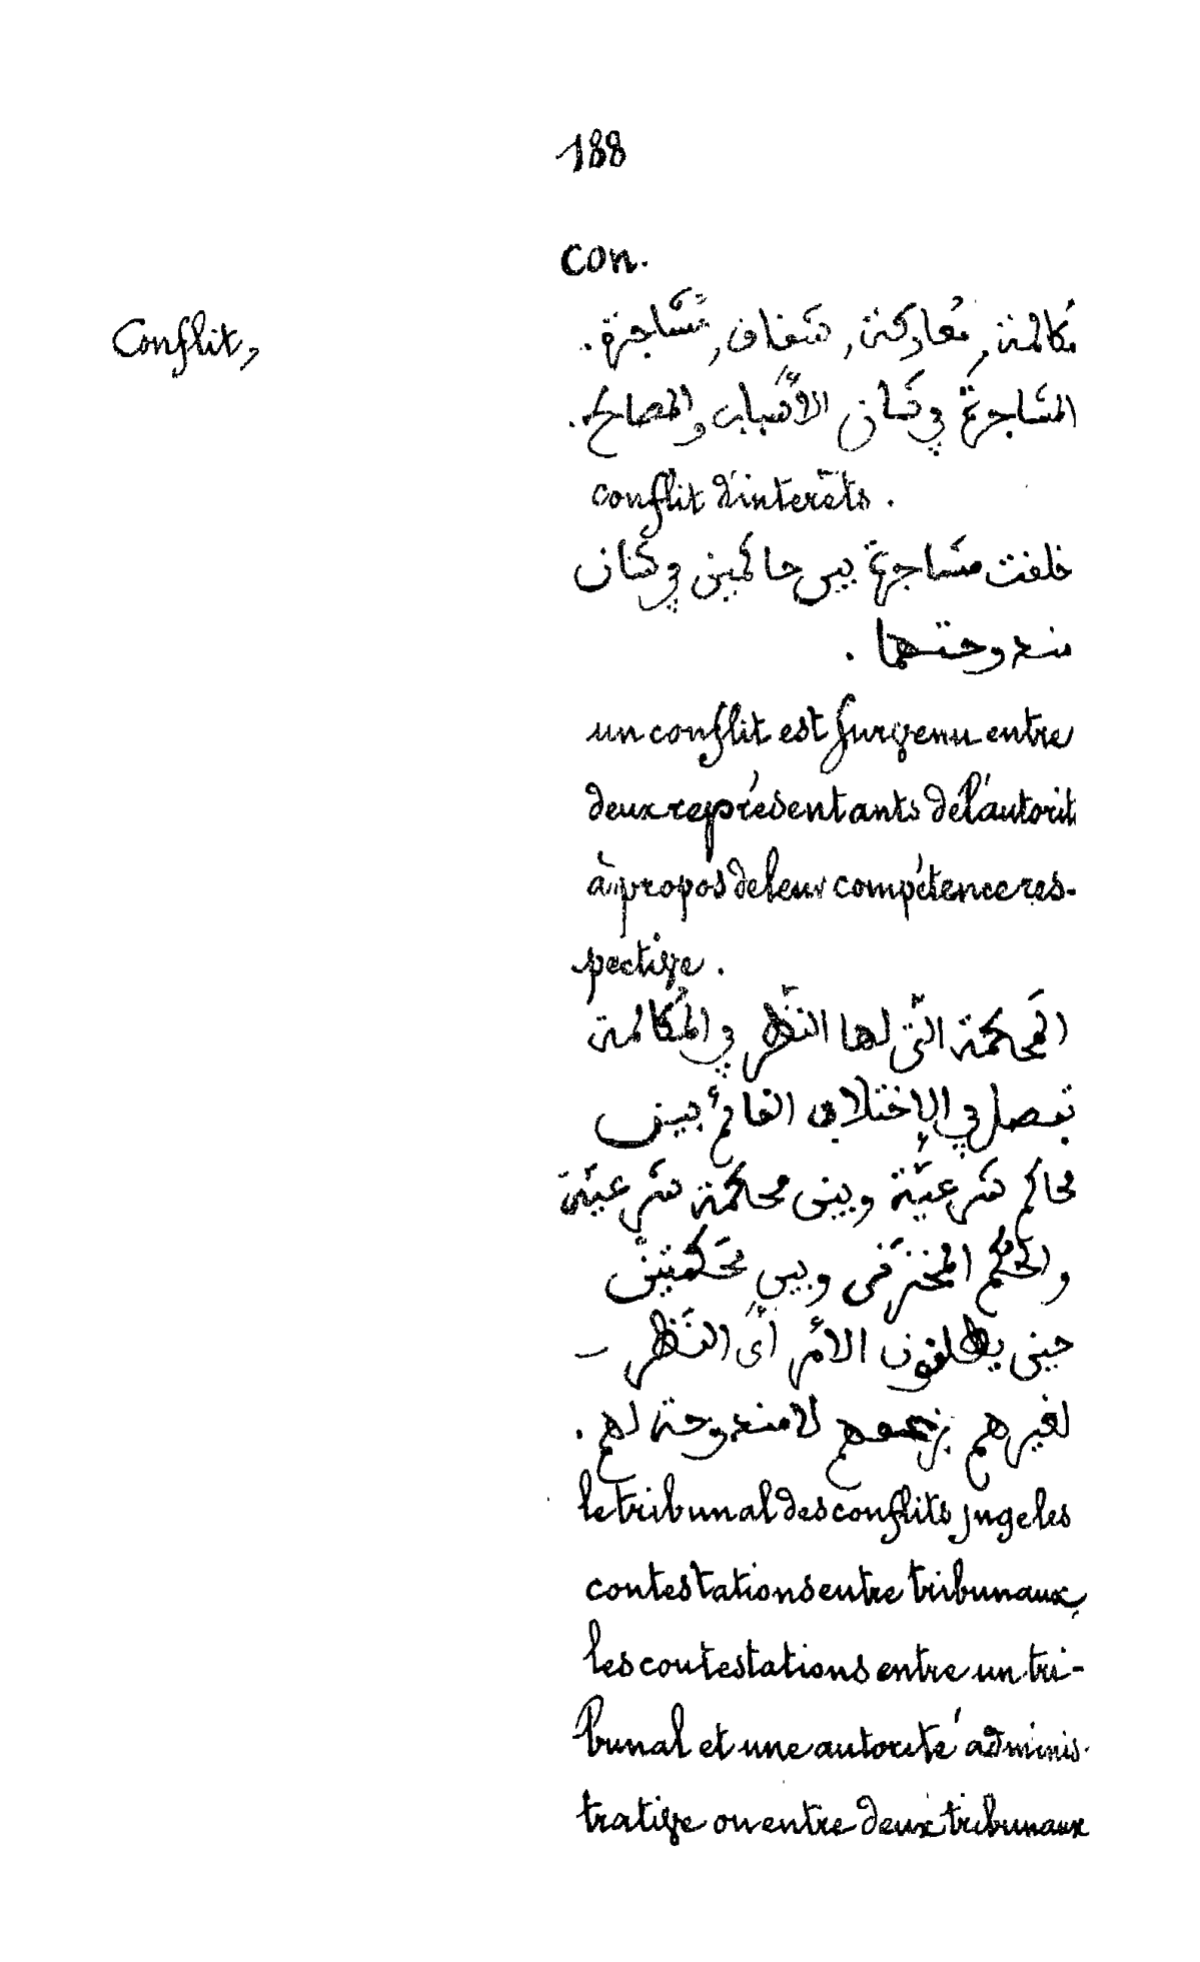 188
con.
Conflit,
مُكالمة, مُعاركة, شقاق, مُشَاجرة.
المشَاجرة في شَان الأَسْباب والمصالح.
conflit d'interêts.
خلقت مشَاجرة بين حاكمين في شَان
مندوحتهما.
un conflit est survenu entre
deux représentants de l'autorité
à propos de leur compétence res-
pective.
المَحكمة الَّتي لها النّظر في المُكالمة
تفصل في الإختلاف القائم بين
محاكم شَرعيَّة وبين محكمَة شَرعيَّة
والحُكْم المخزَني وبين محَكمتين
حين يطلقون الأمر أَيْ النَّظر -
لغيرهم بزعمهم لا مندوحة لهم.
le tribunal des conflits juge les
contestations entre tribunaux,
les contestations entre un tri-
bunal et une autorité adminis-
trative ou entre deux tribunaux